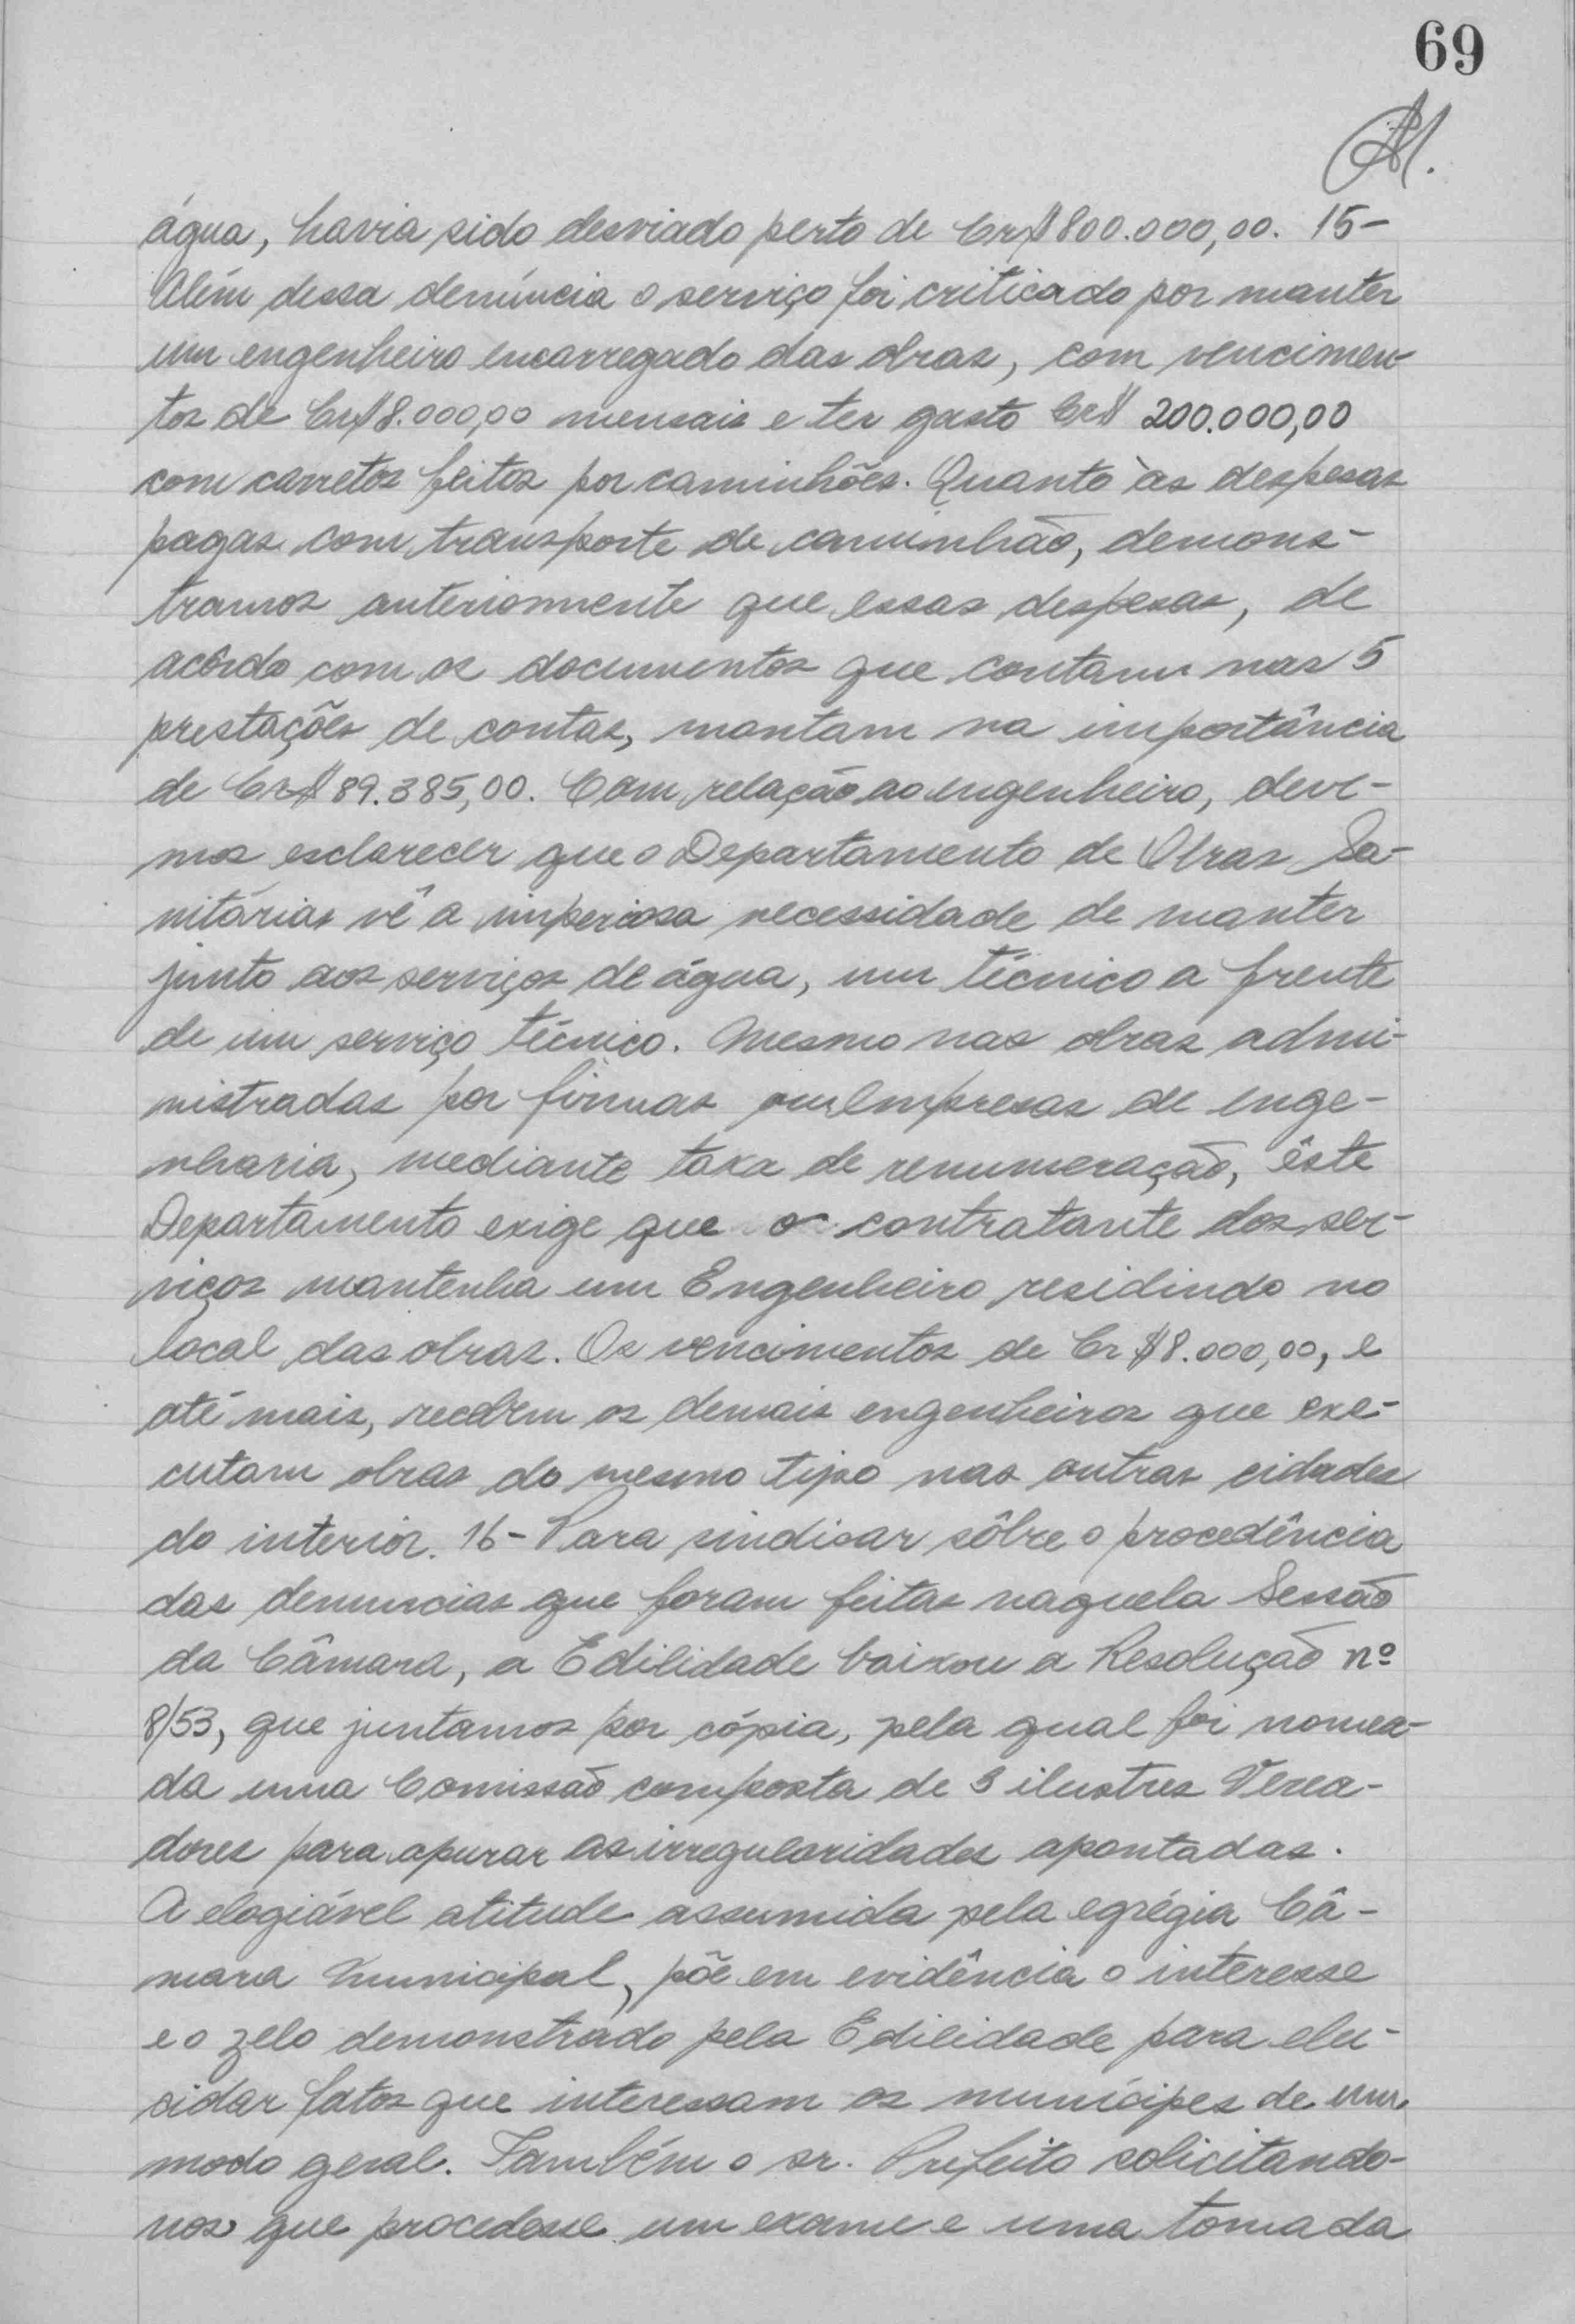 69
água, havia sido desviado perto de Cr$ 800.000,00. 15-
Além dessa denúncia o serviço foi criticado por manter
um engenheiro encarregado das obras, com vencimen-
tos de Cr$ 8.000,00 mensais e ter gasto Cr$ 200.000,00
com carretos feitos por caminhões. Quanto às despesas
pagas com transporte de caminhão, demons-
tramos anteriormente que essas despesas, de
acôrdo com os documentos que contam nas 5
prestações de contas, montam na importância
de Cr$ 89.385,00. Com relação ao engenheiro, deve-
mos esclarecer que o Departamento de Obras Sa-
nitárias vê a imperiosa necessidade de manter
junto aos serviços de água, um técnico a frente
de um serviço técnico. Mesmo nas obras admi-
nistradas por firmas ou empresas de enge-
nharia, mediante taxa de renumeração, êste
Departamento exige que o contratante dos ser-
viços mantenha um Engenheiro residindo no
local das obras. Os vencimentos de Cr $8.000,00, e
até mais, recebem os demais engenheiros que exe-
cutam obras do mesmo tipo nas outras cidades
do interior. 16- Para sindicar sôbre o procedência
das denuncias que foram feitas naquela Sessão
da Câmara, a Edilidade baixou a Resolução nº
8/53, que juntamos por cópia, pela qual foi nomea-
da uma Comissão composta de 3 ilustres Verea-
dores para apurar as irregularidades apontadas.
A elogiável atitude assumida pela egrégia Câ-
mara Municipal, põe em evidência o interesse
e o zelo demonstrado pela Edilidade para elu-
cidar fatos que interessam os munícipes de um
modo geral. Também o sr. Prefeito solicitando-
nos que procedesse um exame e uma tomada